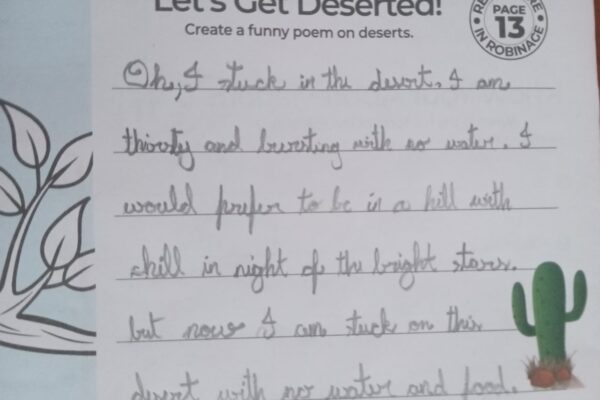 Let's Get Deserted!
Create a funny poem on deserts.
PAGE
13
IN ROBINAGE
Oh, I stuck in the desort. I am
thirsty and bursting with no water. I
would prefer to be in a hill with
chill in night of the bright stars.
but now I am stuck on this
desert with no water and food.